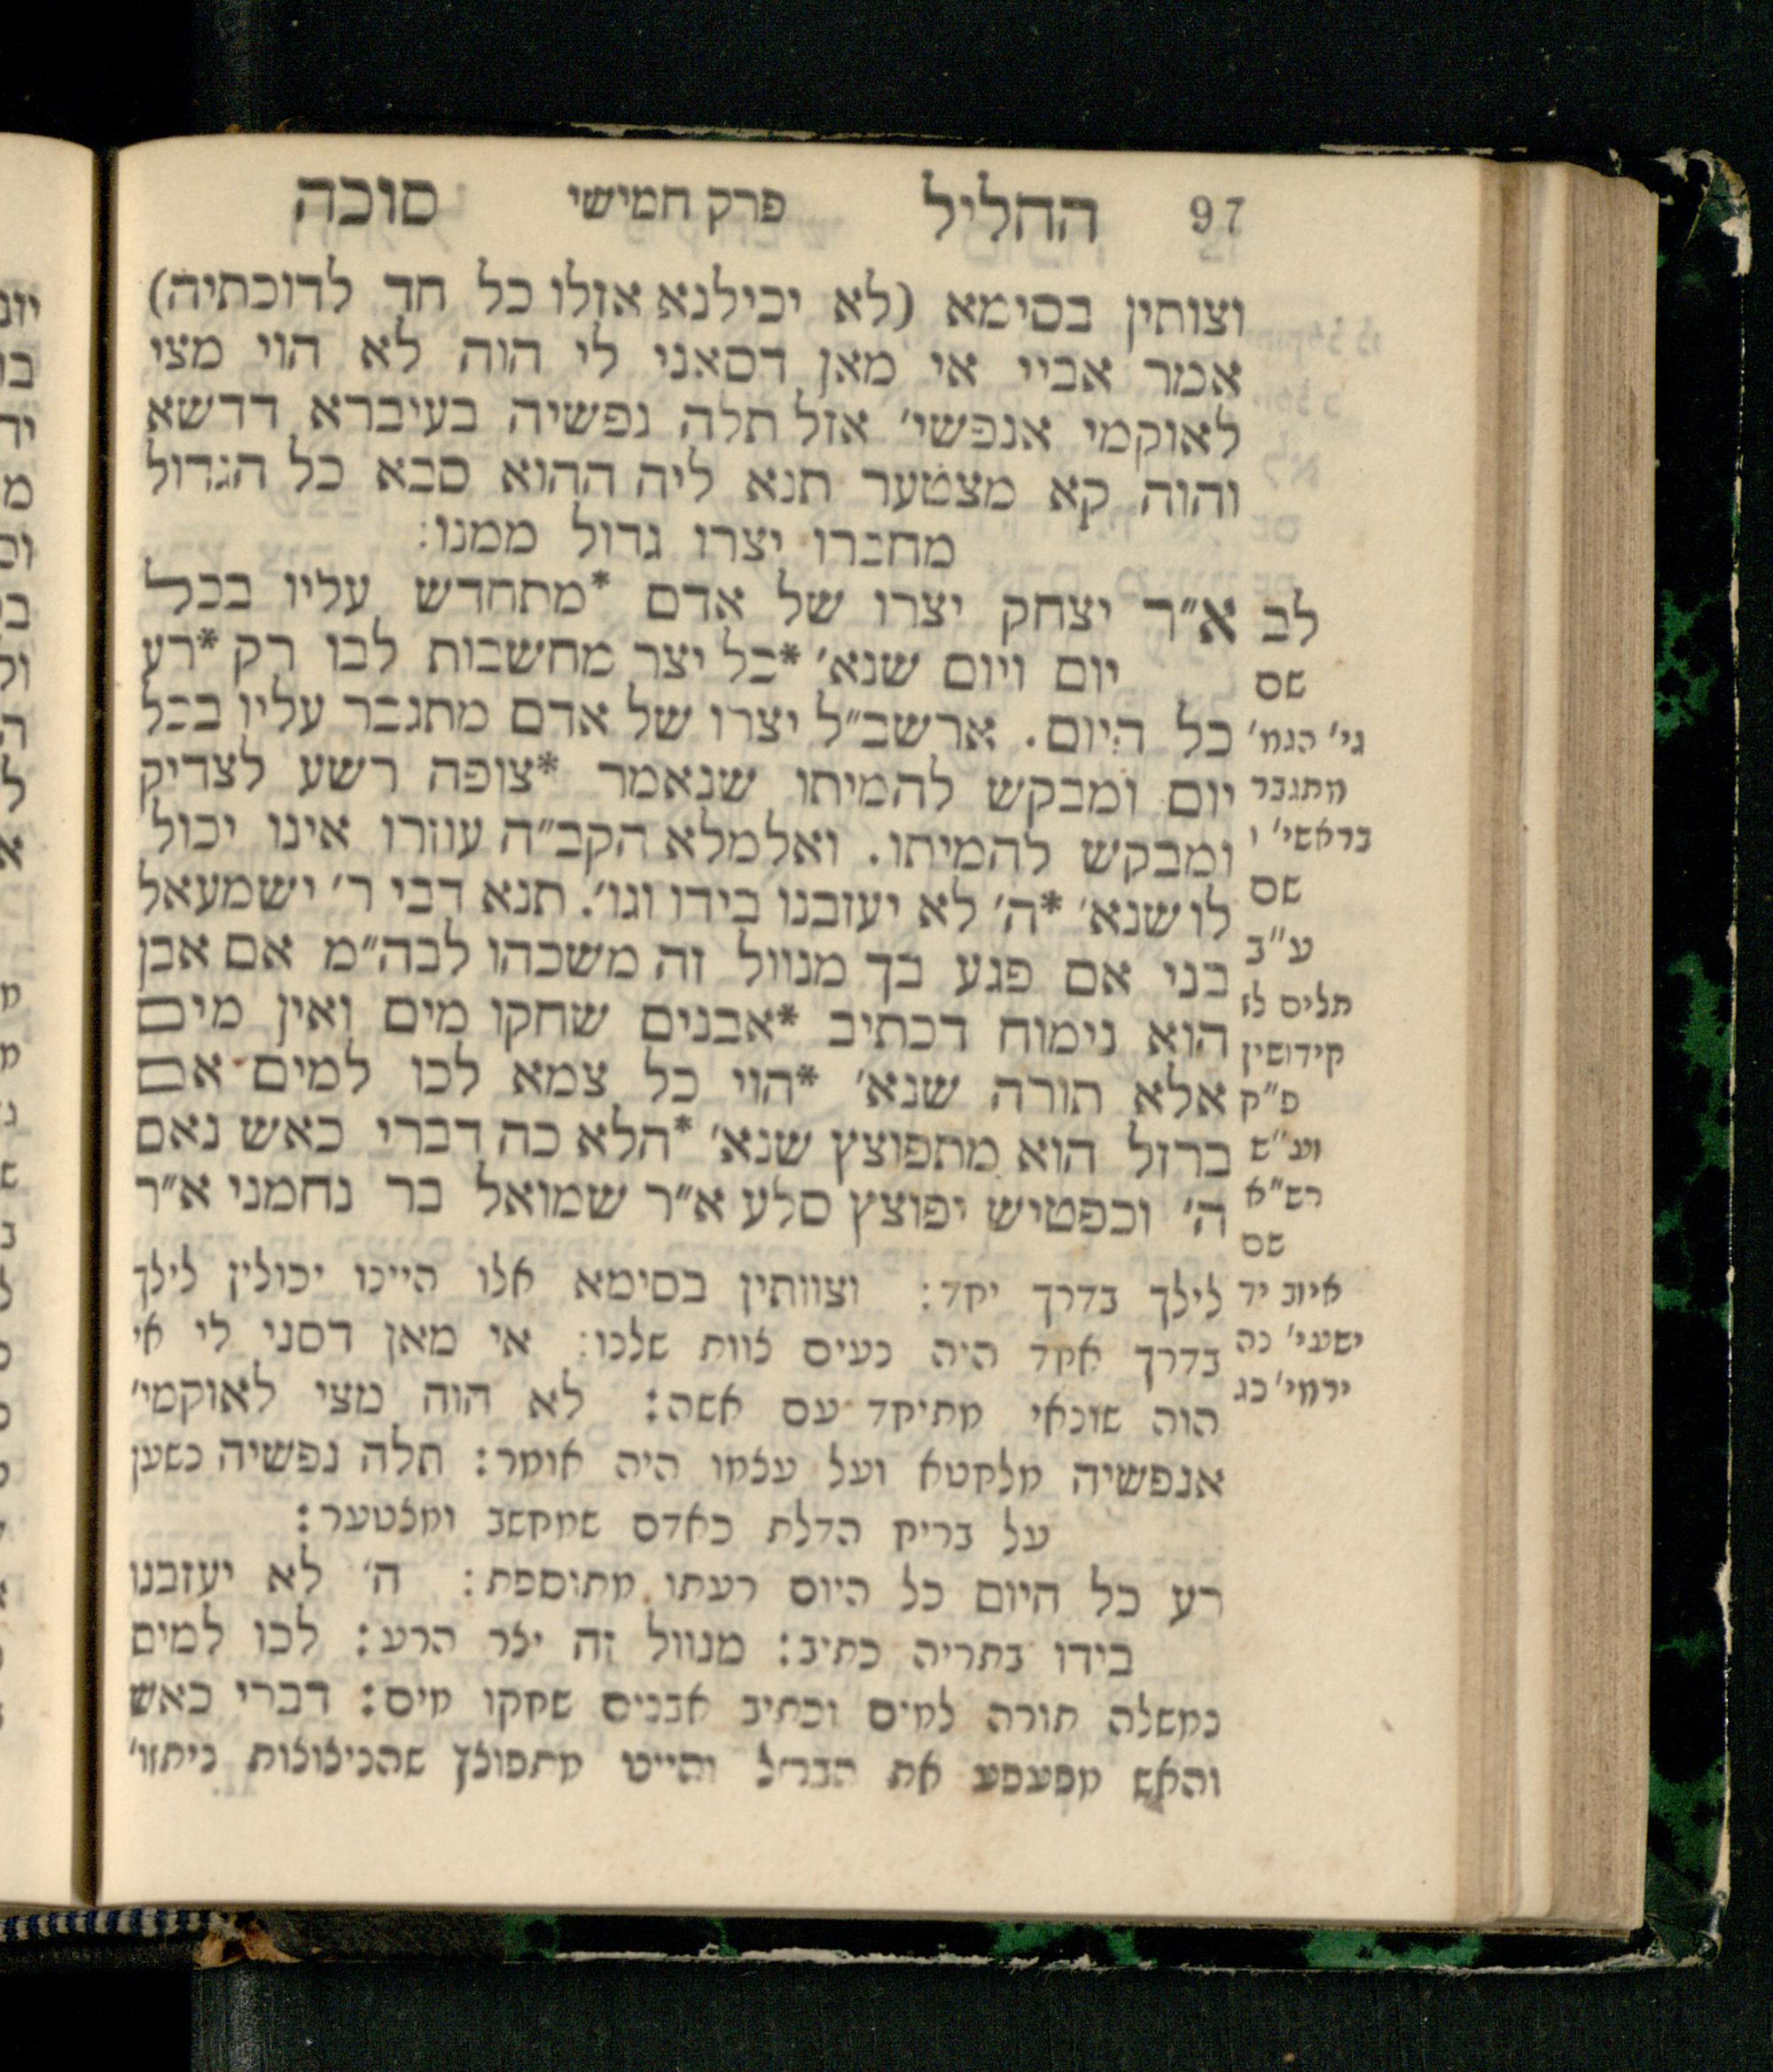 97 החליל פרק חמישי סוכה
וצותין בסימא (לא יכילנא אזלו כל חד לדוכתיה)
אמר אביי אי מאן דסאני לי הוה לא הוי מצי
לאוקמי אנפשי' אזל תלה נפשיה בעיברא דדשא
והוה קא מצטער תנא ליה ההוא סבא כל הגדול
מחברו יצרו גדול ממנו:
לב א"ר יצחק יצרו של אדם *מתחדש עליו בכל
יום ויום שנא' *כל יצר מחשבות לבו רק *רע
כל היום. ארשב"ל יצרו של אדם מתגבר עליו בכל
יום ומבקש להמיתו שנאמר *צופה רשע לצדיק
ומבקש להמיתו. ואלמלא הקב"ה עוזרו אינו יכול
לו שנא' *ה' לא יעזבנו בידו וגו'. תנא דבי ר' ישמעאל
בני אם פגע בך מנוול זה משכהו לבה"מ אם אבן
הוא נימוח דכתיב *אבנים שחקו מים ואין מים
אלא תורה שנא' *הוי כל צמא לכו למים אם
ברזל הוא מתפוצץ שנא' *הלא כה דברי כאש נאם
ה' וכפטיש יפוצץ סלע א"ר שמואל בר נחמני א"ר
שם
גי' הגמ'
מתגבר
בראשי' ו
שם
ע"ב
תלים לז
קידושין
פ"ק
וע"ש
רש"א
שם
איוב יד
ישעי' נה
ירמי' כג
לילך בדרך יחד: וצוותין בסימא אלו היינו יכולין לילך
בדרך אחד היה נעים צוות שלנו: אי מאן דסני לי אי
הוה שונאי מתיחד עם אשה: לא הוה מצי לאוקמי'
אנפשיה מלחטא ועל עצמו היה אומר: תלה נפשיה נשען
על בריח הדלת כאדם שמחשב ומצטער:
רע כל היום כל היום רעתו מתוספת: ה' לא יעזבנו
בידו בתריה כתיב: מנוול זה יצר הרע: לכו למים
נמשלה תורה למים וכתיב אבנים שחקו מים: דברי כאש
והאש מפעפע את הברזל והיינו מתפוצץ שהניצוצות ניתזו'